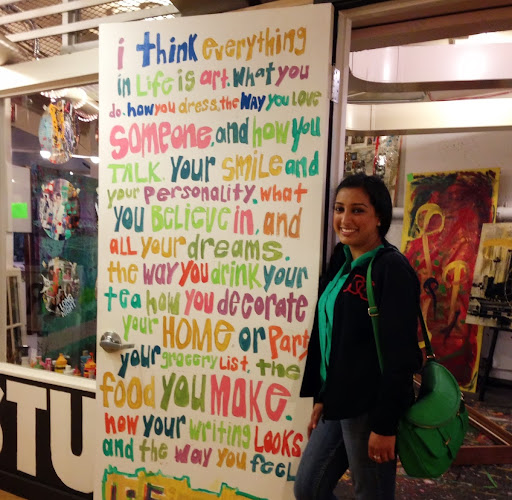 i think everything
in Life is art. What you
do. how you dress. the way you love
someone, and how you
TALK. your smile and
your personality. what
you Believe in, and
all your dreams.
the way you drink your
tea how you decorate
your HOME. or Party
your grocery List. the
food you make.
how your writing Looks.
and the way you feel.
STU